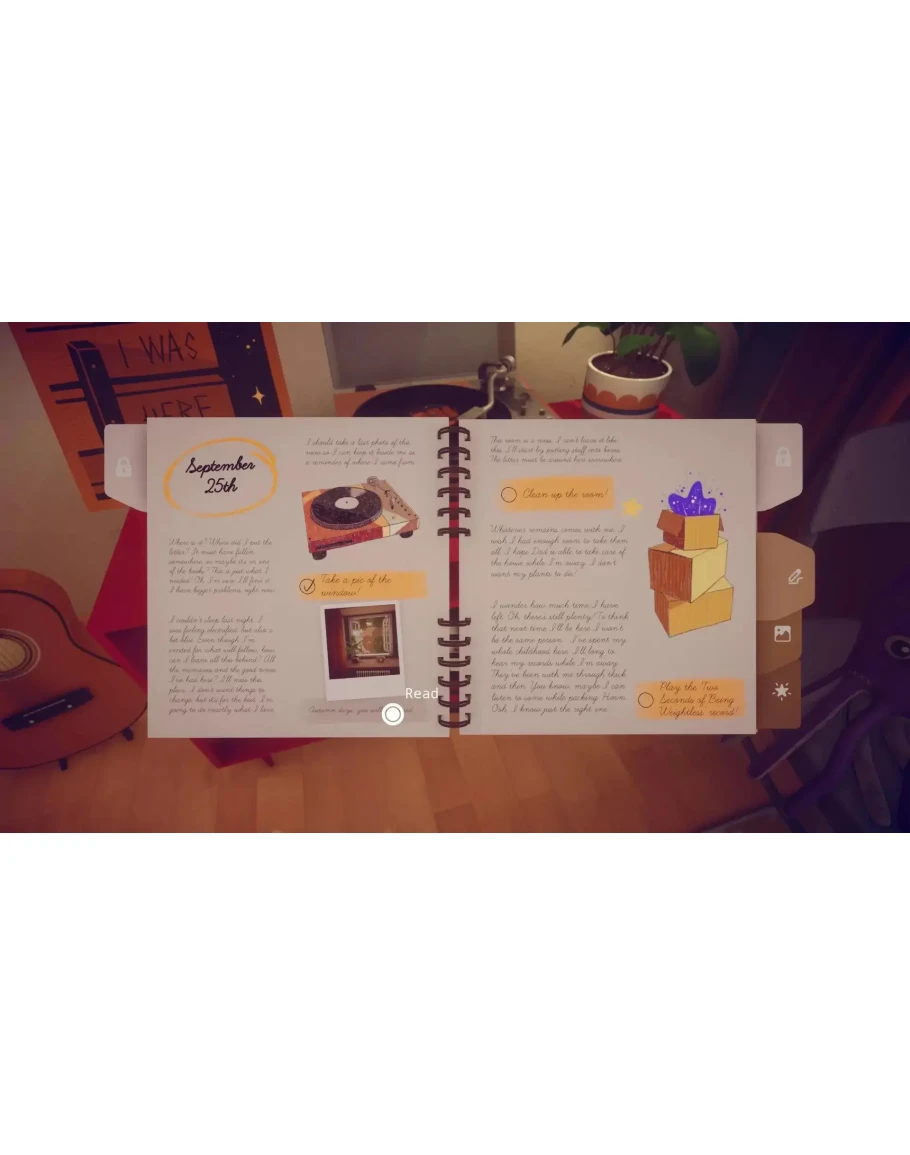 I WAS
HERE
September
25th
Where is it? Where did I put the
letter? It must have fallen
somewhere, or maybe it's in one
of the books? This is just what I
needed! Oh, I'm sure I'll find it.
I have bigger problems right now.
I couldn't sleep last night. I
was feeling electrified but also a
bit blue. Even though I'm
excited for what will follow, how
can I leave all this behind? All
the memories and the good times
I've had here? I'll miss this
place. I don't want things to
change, but it's for the best. I'm
going to do exactly what I love.
I should take a last photo of this
view so I can keep it beside me as
a reminder of where I came from.
Take a pic of the
window!
Autumn days, you will
Read
This room is a mess. I can't leave it like
this. I'll start by putting stuff into boxes.
The letter must be around here somewhere.
Clean up the room!
Whatever remains comes with me. I
wish I had enough room to take them
all. I hope Dad is able to take care of
the house while I'm away. I don't
want my plants to die!
I wonder how much time I have
left. Oh, there's still plenty! To think
that next time I'll be here I won't
be the same person. I've spent my
whole childhood here. I'll long to
hear my records while I'm away.
They've been with me through thick
and thin. You know, maybe I can
listen to some while packing. Hmm.
Ooh, I know just the right one.
Play the Two
Seconds of Being
Weightless record!